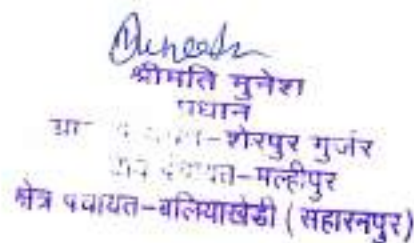 Munesh
श्रीमति मुनेश
प्रधान
ग्रा पंचायत-शेरपुर गुर्जर
पंचायत-मल्हीपुर
क्षेत्र पंचायत-बलियाखेडी (सहारनपुर)